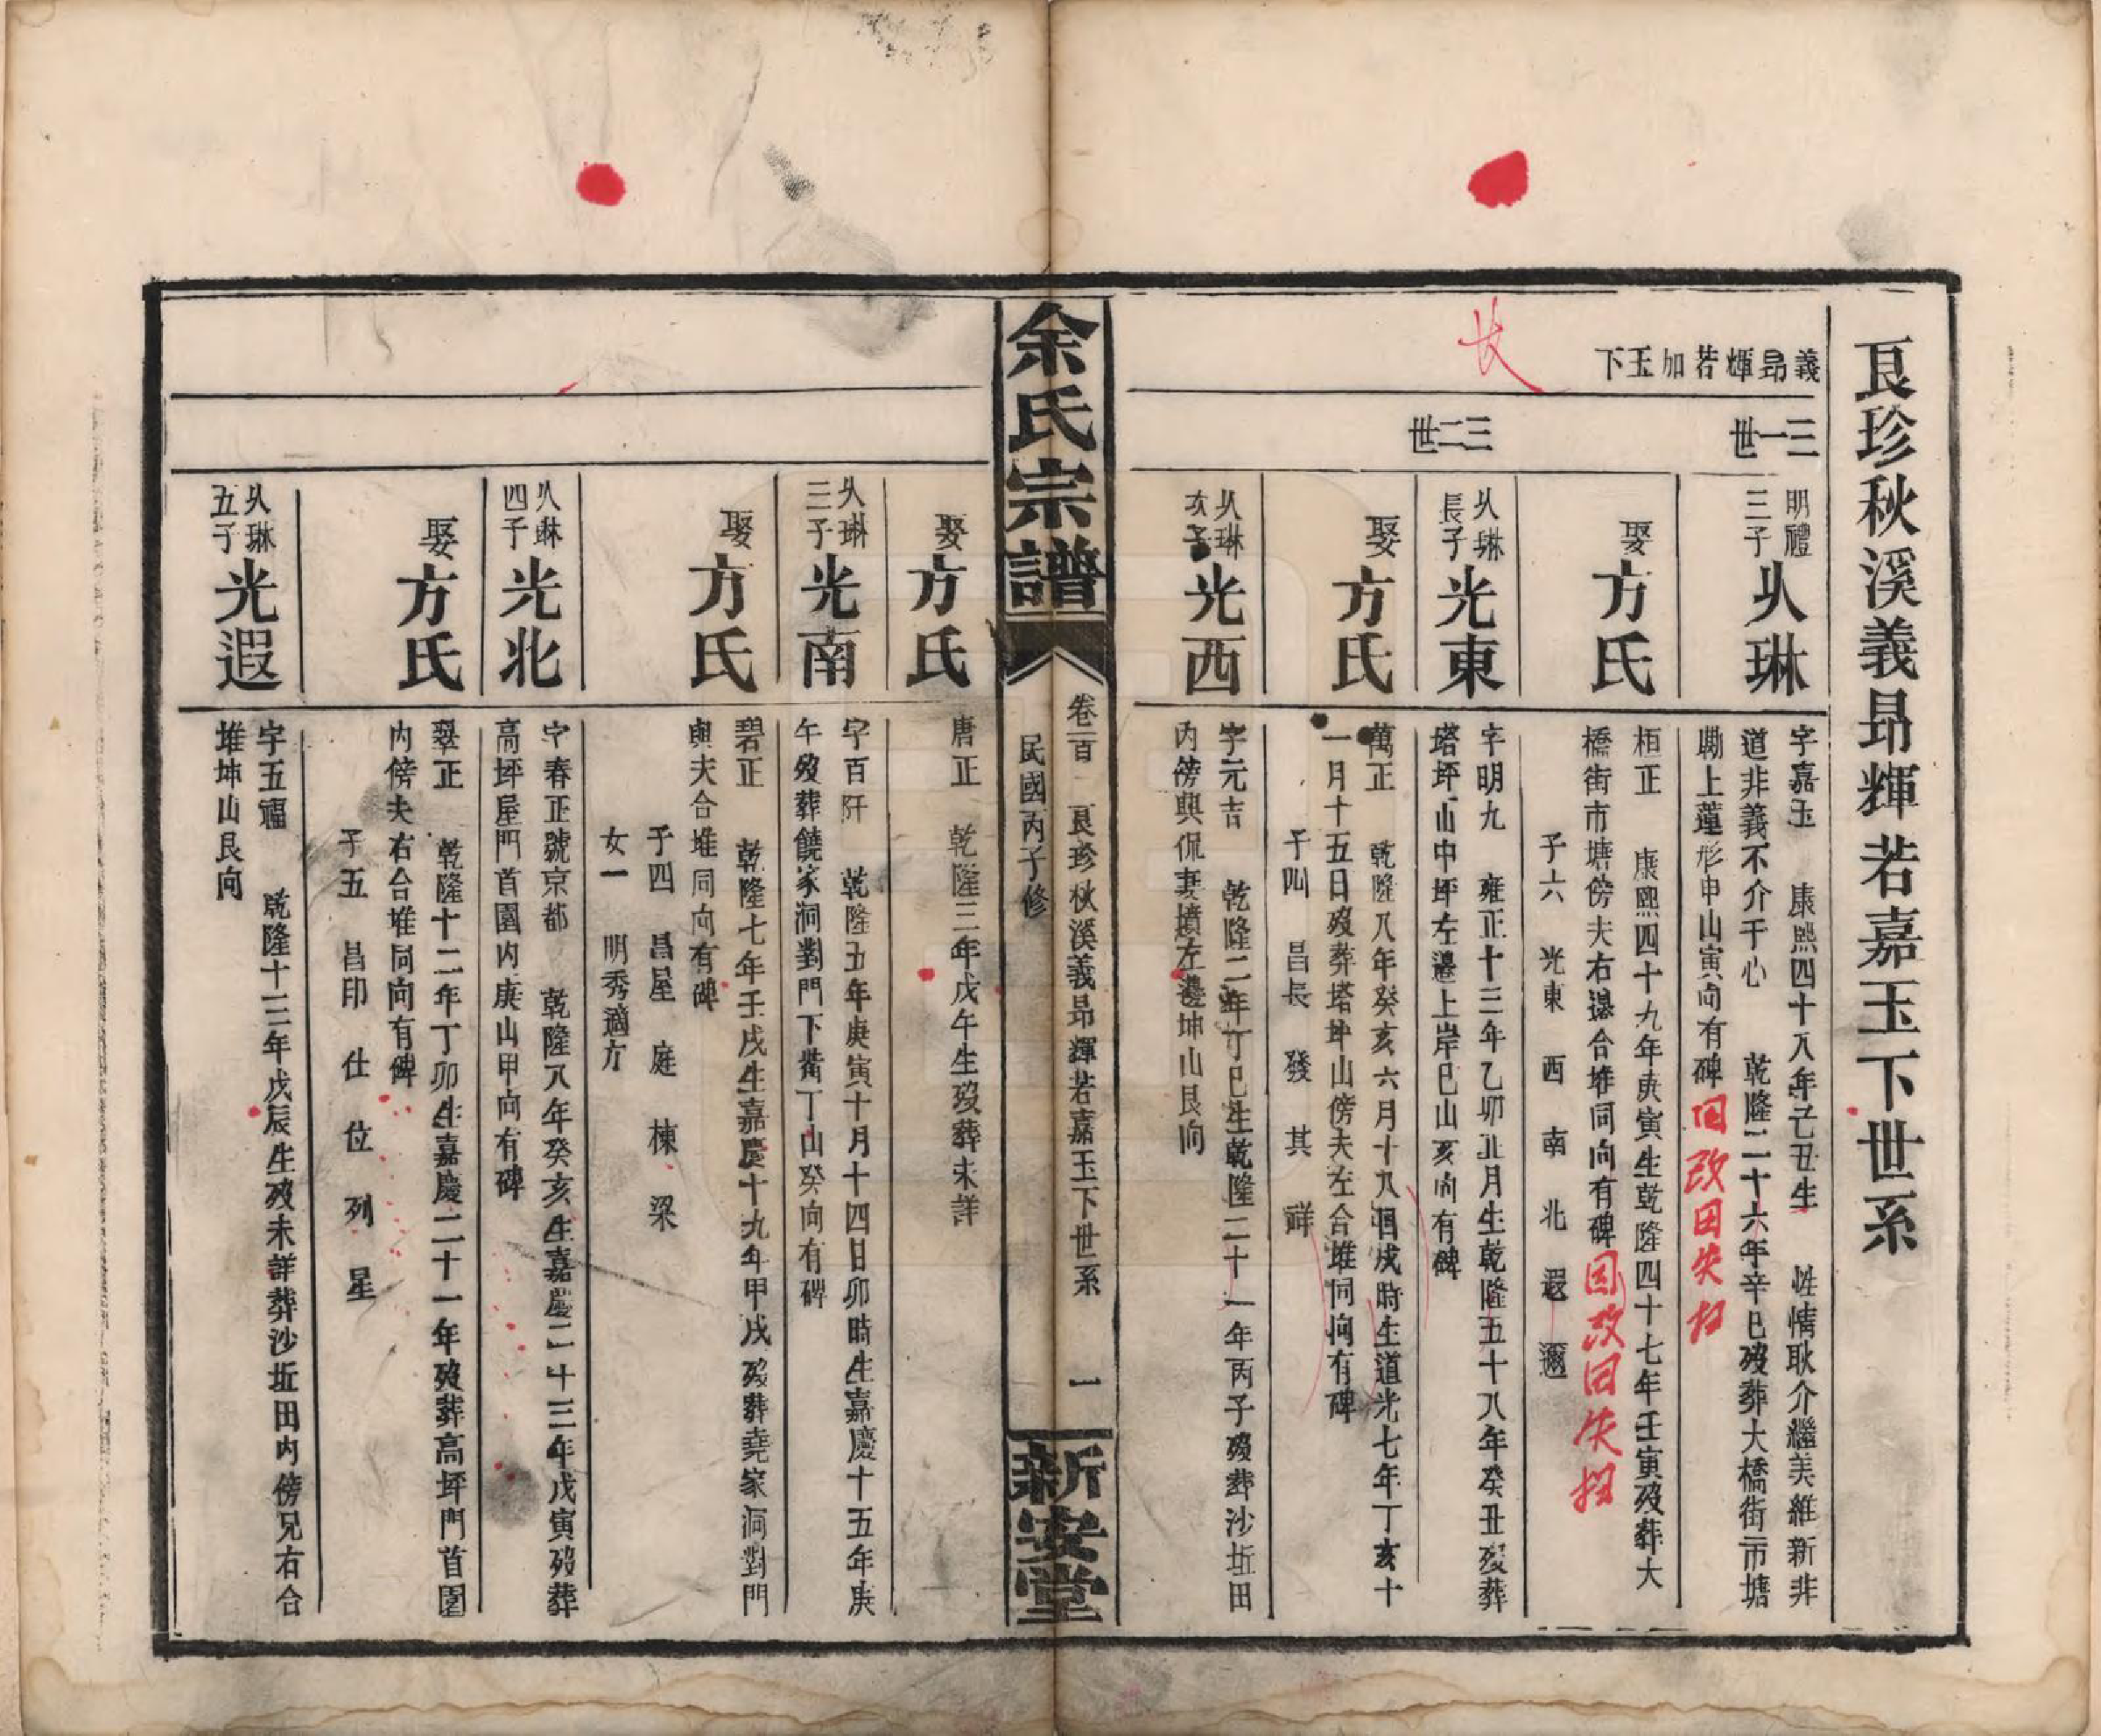 良珍秋溪義昂輝若嘉玉下世系
義昂輝若加玉下
長
三一世
三二世
明禮
三子
乆琳
字嘉玉 康熙四十八年己丑生 性情耿介繼美維新非
道非義不介于心 乾隆二十六年辛巳歿葬大橋街市塘
墈上蓮形申山寅向有碑
因改田失扫
娶方氏
桓正 康熙四十九年庚寅生乾隆四十七年壬寅歿葬大
橋街市塘傍夫右邊合堆同向有碑
因改田失扫
子六 光東 西 南 北 遐 邇
乆琳
長子
光東
字明九 雍正十三年乙卯正月生乾隆五十八年癸丑歿葬
塔坪山中坪左邊上岸巳山亥向有碑
娶方氏
萬正 乾隆八年癸亥六月十八日戌時生道光七年丁亥十
一月十五日歿葬塔坪山傍夫左合堆同向有碑
子四 昌長 發 其 祥
乆琳
次子
光西
字元吉 乾隆二年丁巳生乾隆二十一年丙子歿葬沙坵田
内傍與侃妻墳左邊坤山艮向
余氏宗譜
卷一百 良珍秋溪義昂輝若嘉玉下世系 一
民國丙子修
新安堂
娶方氏
唐正 乾隆三年戊午生歿葬未詳
乆琳
三子
光南
字百阡 乾隆五年庚寅十月十四日卯時生嘉慶十五年庚
午歿葬饒家洞對門下嘴丁山癸向有碑
娶方氏
碧正 乾隆七年壬戌生嘉慶十九年甲戌歿葬堯家洞對門
與夫合堆同向有碑
子四 昌屋 庭 棟 梁
女一 明秀適方
乆琳
四子
光北
字春正號京都 乾隆八年癸亥生嘉慶二十三年戊寅歿葬
高坪屋門首園内庚山甲向有碑
娶方氏
翠正 乾隆十二年丁卯生嘉慶二十一年歿葬高坪門首園
内傍夫右合堆同向有碑
子五 昌印 仕 位 列 星
乆琳
五子
光遐
字五福 乾隆十三年戊辰生歿未詳葬沙坵田内傍兄右合
堆坤山艮向